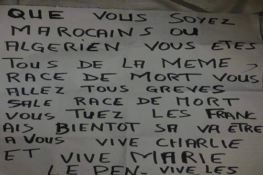 QUE VOUS SOYEZ
MAROCAINS OU
ALGERIEN VOUS ETES
TOUS DE LA MEME
RACE DE MORT VOUS
ALLEZ TOUS GREVES
SALE RACE DE MORT
VOUS TUEZ LES FRANC
AIS BIENTOT SA VA ETRE
A VOUS VIVE CHARLIE
ET VIVE MARIE
LE PEN. VIVE LES